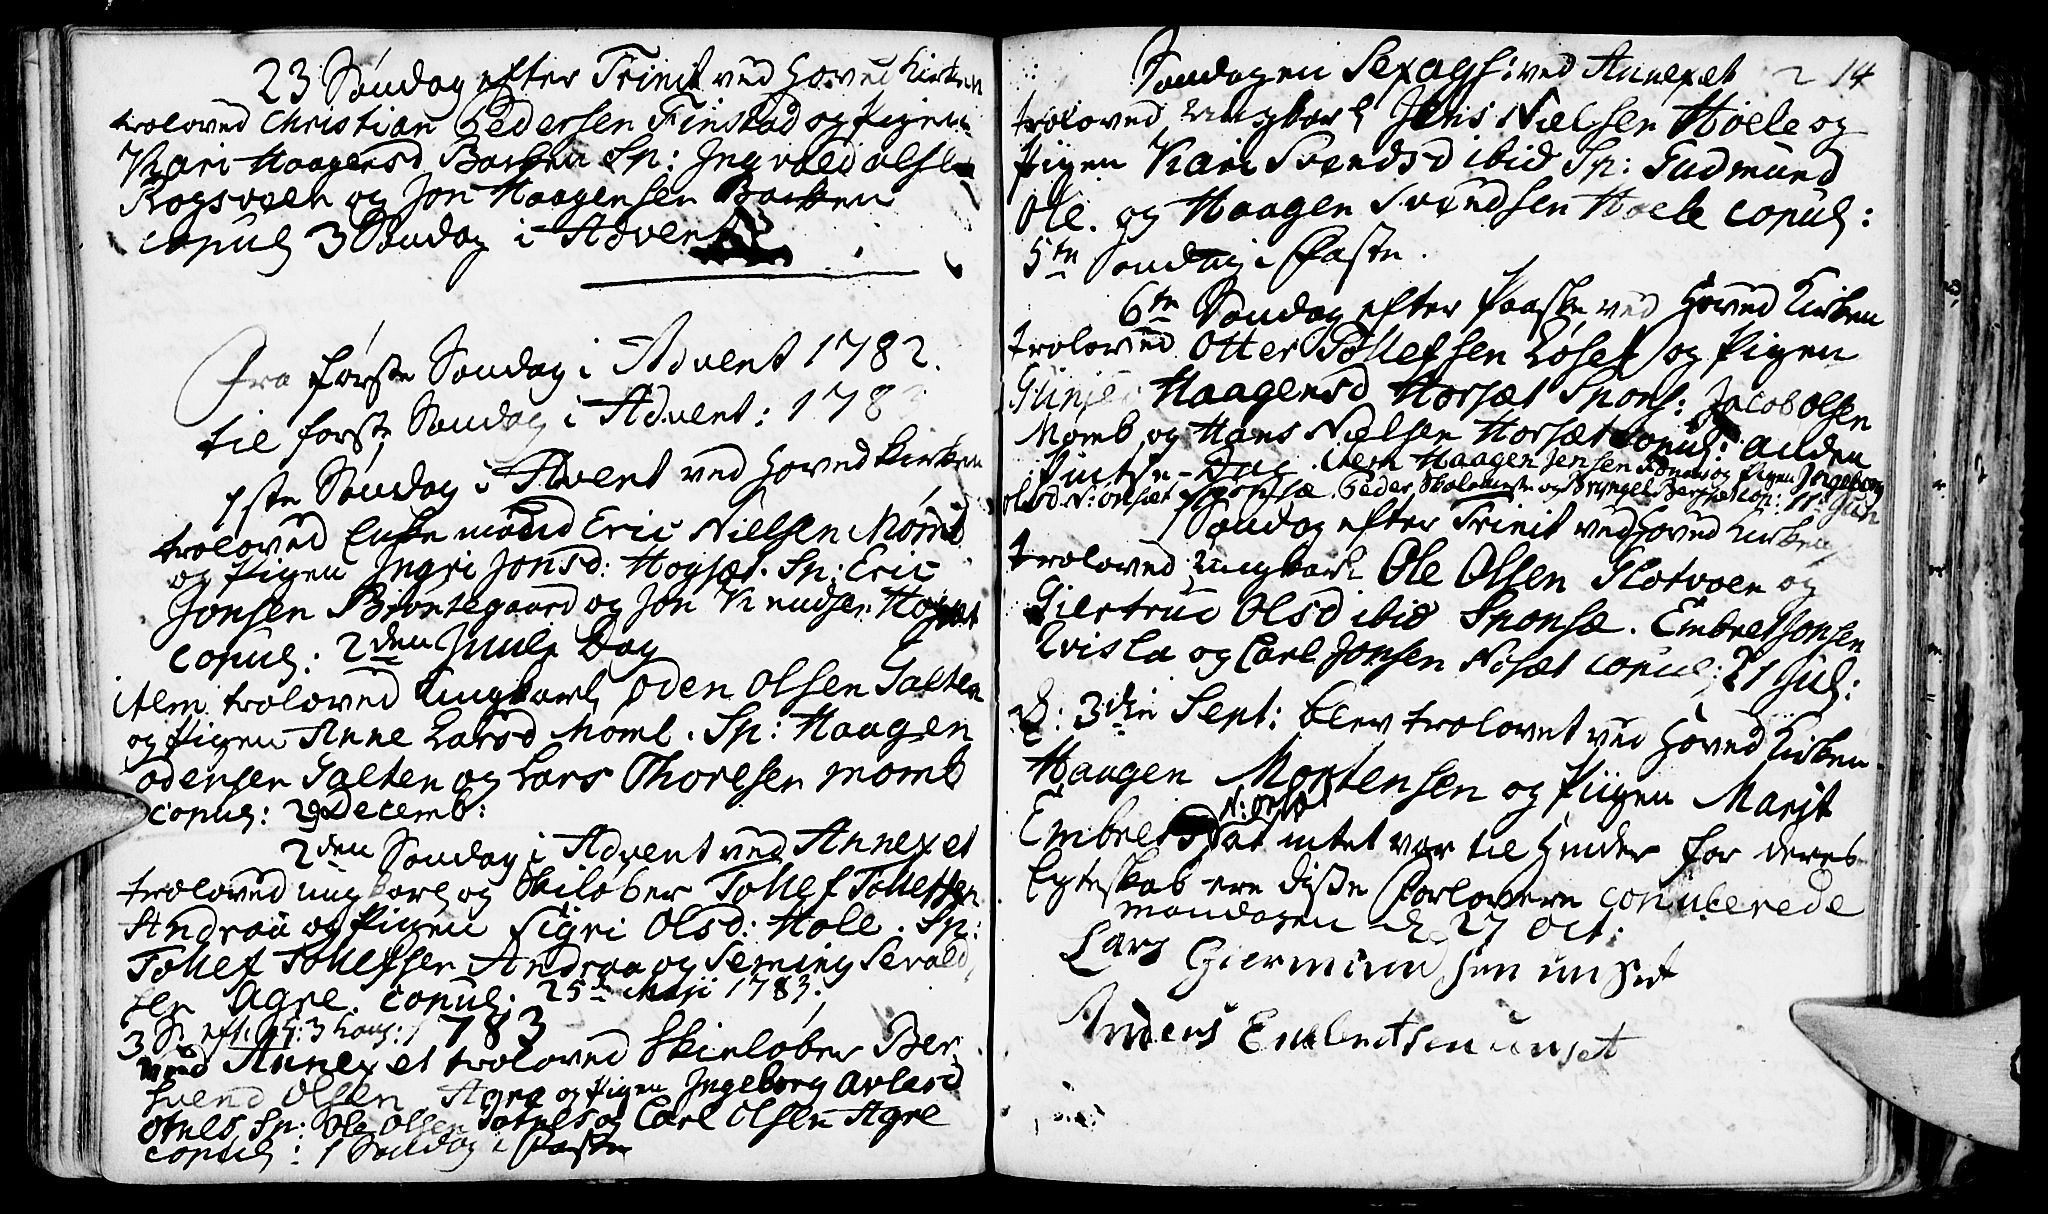 23 Søndag efter Trinit ved Hoved Kirken
troloved Christian Pedersen Finstad og Pigen
Kari Haagensd Backen Sp: Ingvald Olsen
Rogsvoen og Jon Haagensen Backen
copul 3 Søndag i Advent
Fra første Søndag i Advent 1782.
til første Søndag i Advent: 1783
1ste Søndag i Advent ved Hoved Kirken
troloved Enke mand Eric Nielsen Momb
og Pigen Ingri Jonsd: Hogsæt. Sp: Eric
Jonsen Berntegaard og Jon Knudsen
copul: 2den Juule Dag
item troloved ungkarl Oden Olsen Galten
og Pigen Anne Larsd Momb. Sp: Haagen
Odensen Galten og Lars Thoresen Momb
copul: 29 Decemb:
2den Søndag i Advent ved Annexet
troloved ungkarl og Skiløber Tollef Tollefsen
Andraa og Pigen Sigri Olsd: Hole. Sp:
Tollef Tollefsen Andraa og Seming Sevald
sen Agre. copul: 25de Maji 1783.
3 S. eft: H: 3 Kong: 1783
ved Annexet troloved Skieløber Ber
Svend Olsen Agre og Pigen Ingeborg
Sp: Ole Olsen og Carl Olsen Agre
copul: 1 Søndag i Faste
Søndagen Sexages: ved Annexet 214
troloved ungkarl Jens Nielsen Hoele og
Pigen Kari Svendsd ibid Sp: Gudmund
Ole. og Haagen Svendsen Hoele copul:
5te Søndag i Faste.
6te Søndag efter Paaske ved Hoved Kirken
troloved Otter Tollefsen Løset og Pigen
Haagensd Horsæt Spons: Jacob Olsen
Momb og Hans Nielsen Horsæt Copul: anden
Pintse-Dag. item Haagen Jensen og Pigen Ingeborg
Olsd N: Sponsæ. Peder og Bryngel cop: 11 Jun
1 Søndag efter Trinit ved Hoved Kirken
troloved ungkarl Ole Olsen Flotvoen og
Giertrud Olsd ibid Sponsæ. Embret Jonsen
Qvisla og Carl Jonsen Nosæt copul: 27 Jul:
d: 3die Sept: blev trolovet ved Hoved Kirken
Haagen Mortensen og Piigen Marit
Embretsd at intet var til Hinder for deres
Egteskab ere disse Forlovere copulerede
mandagen d 27 Oct:
Lars Giermundsen unset
Anders Embretsen unset